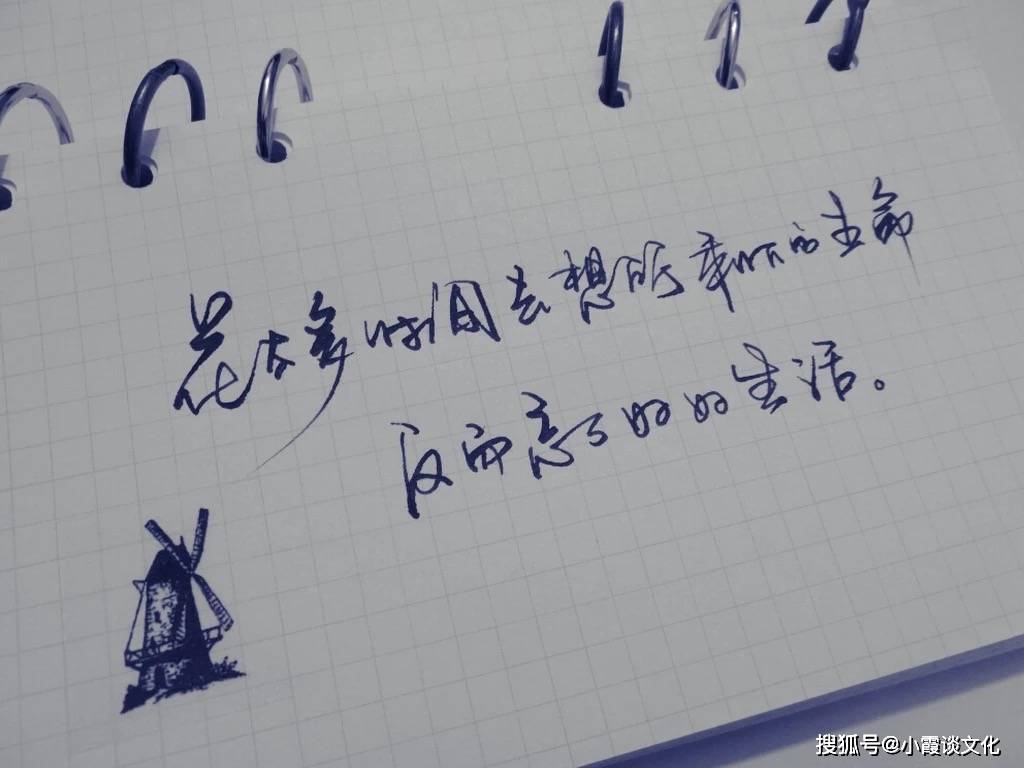 花太多时间去想所剩下的生命
反而忘了好好的生活。
搜狐号@小霞谈文化